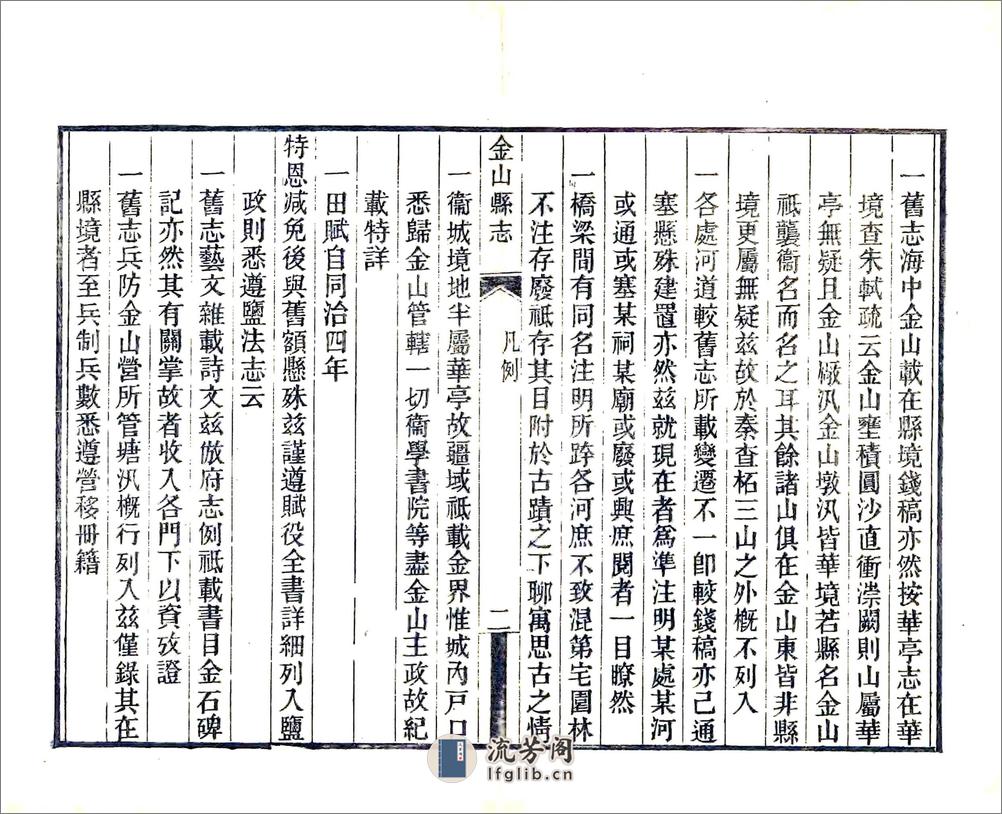 一舊志海中金山載在縣境錢稿亦然按華亭志在華
境查朱軾疏云金山壅積圓沙直衝漴闕則山屬華
亭無疑且金山礮汛金山墩汛皆華境若縣名金山
祗襲衞名而名之耳其餘諸山俱在金山東皆非縣
境更屬無疑兹故於秦查柘三山之外槪不列入
一各處河道較舊志所載變遷不一卽較錢稿亦已通
塞懸殊建置亦然兹就現在者爲準注明某處某河
或通或塞某祠某廟或廢或興庶閱者一目瞭然
一橋梁間有同名注明所跨各河庶不致混第宅園林
不注存廢祗存其目附於古蹟之下聊寓思古之情
金山縣志
凡例
二
一衞城境地半屬華亭故疆域祗載金界惟城內戸口
悉歸金山管轄一切衞學書院等盡金山主政故紀
載特詳
一田賦自同治四年
特恩减免後與舊額懸殊兹謹遵賦役全書詳細列入鹽
政則悉遵鹽法志云
一舊志藝文雜載詩文兹倣府志例祗載書目金石碑
記亦然其有關掌故者收入各門下以資攷證
一舊志兵防金山營所管塘汛槪行列入兹僅錄其在
縣境者至兵制兵數悉遵營移冊籍
流芳阁
lfglib.cn